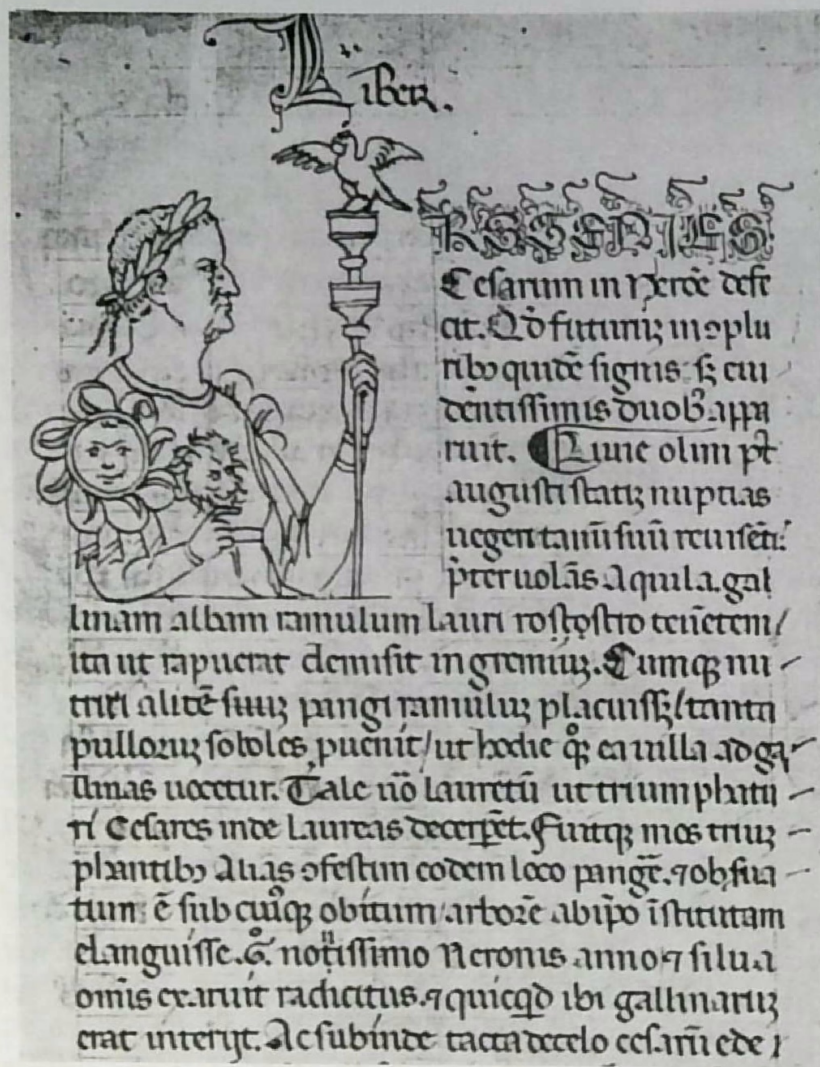 Liber.
Cesarum in Nerōe defe
cit. Qđ futuruꝫ ꝯplu
ribꝰ quidē signis. sꝫ eui
dentissimis duobꝰ appa
ruit. Liuie olim pꝰt
augusti statiꝫ nuptias
uegentanū suū reuisēti
p̄teruolās Aquila. gal
linam albam ramulum lauri rostro tenētem/
ita ut rapuerat demisit in gremiuꝫ. Cumqꝫ nu
triri alitē suuꝫ pangi ramuluꝫ placuissꝫ/ tanta
pulloruꝫ soboles puenit/ ut hodie qꝫ ea uilla ad ga
llinas uocetur. Tale u̅o lauretū ut triumphatu
ri Cesares inde laureas decerpet. Fuitqꝫ mos triuꝫ
phantibꝰ Alias ꝯfestim eodem loco pangē. ⁊ obsua
tum ē sub cuiꝰqꝫ obitum/ arborē ab ip̄o īstitutam
elanguisse. G̊. notissimo Neronis anno ⁊ silua
omīs exaruit radicitus. ⁊ quicqd ibi gallinaruꝫ
erat interijt. Ac subinde tacta decelo cesarū ede